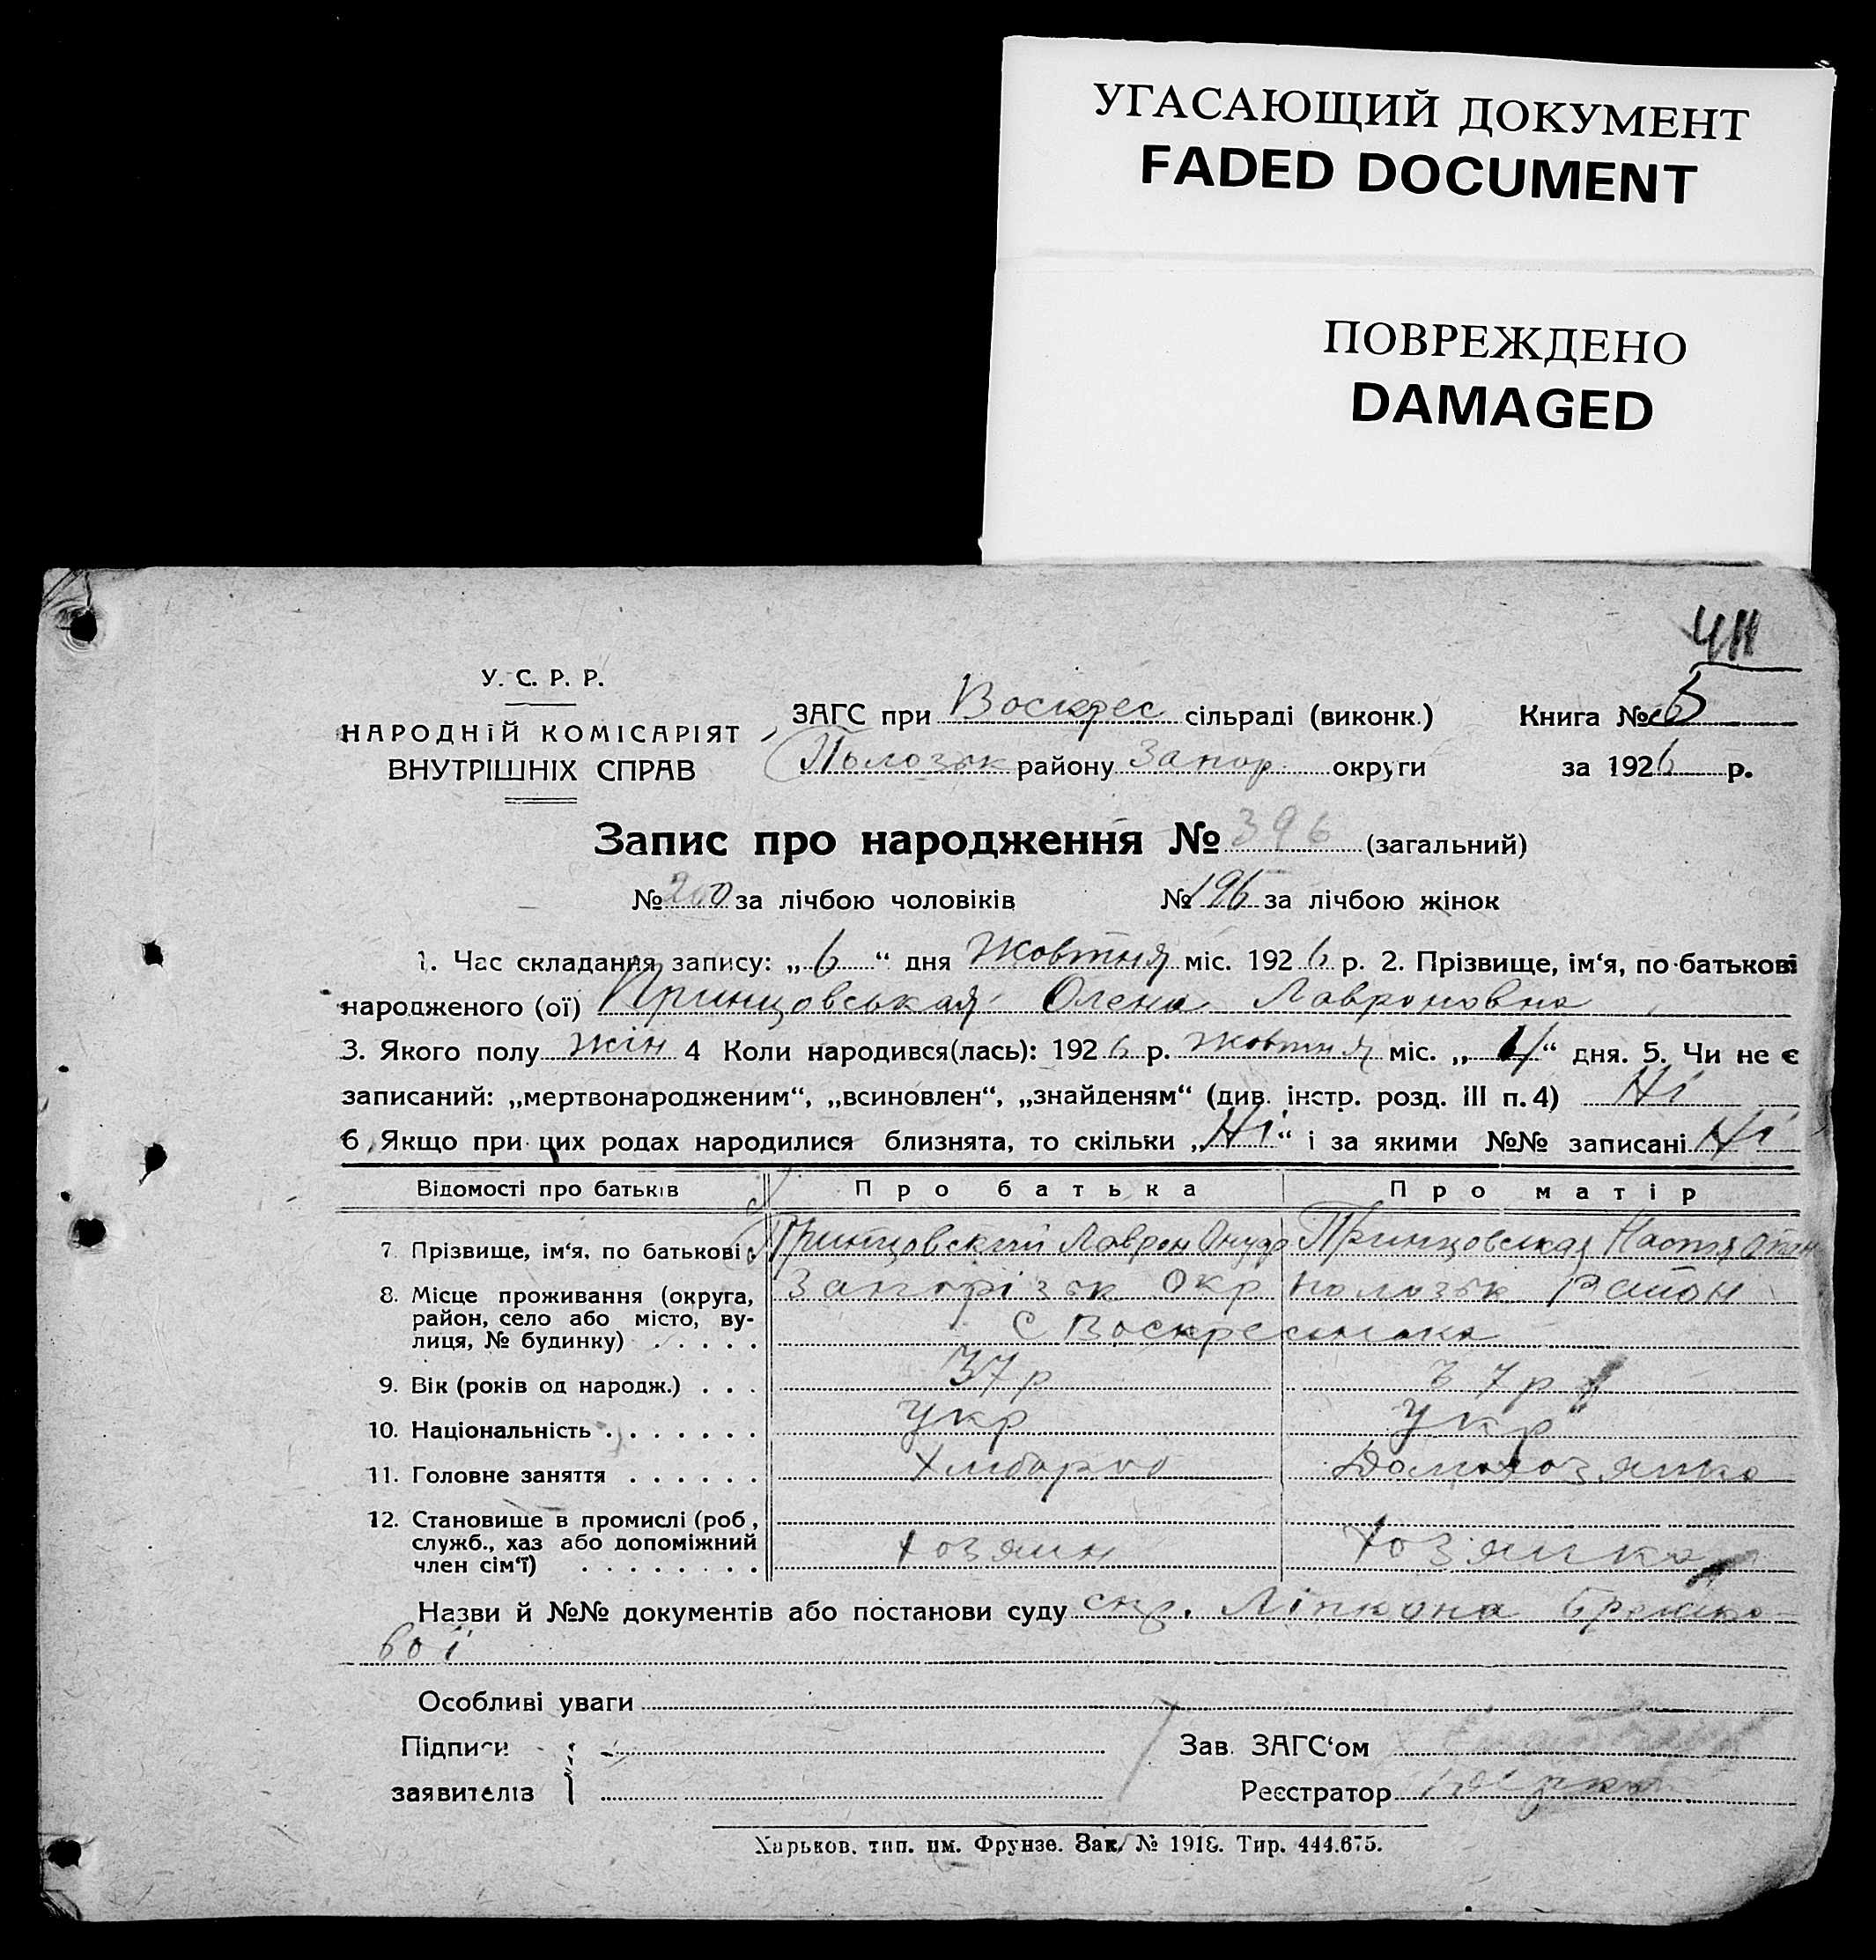 УГАСАЮЩИЙ ДОКУМЕНТ
FADED DOCUMENT
ПОВРЕЖДЕНО
DAMAGED
У. С. Р. Р.
НАРОДНІЙ КОМІСАРІЯТ
ВНУТРІШНІХ СПРАВ
ЗАГС при Воскрес сільраді (виконк.) Книга № 5
Пологзьк району Запор округи за 1926 р.
Запис про народження № 396 (загальний)
№ 200 за лічбою чоловіків № 196 за лічбою жінок
1. Час складання запису: „6“ дня Жовтня міс. 1926 р. 2. Прізвище, ім‘я, по-батькові
народженого (ої) Принцовськая Олена Лавроновна
3. Якого полу жін 4 Коли народився(лась): 1926 р. жовтня міс. „ “ дня. 5. Чи не є
записаний: „мертвонародженим“, „всиновлен“, „знайденям“ (див. інстр. розд. III п. 4) Ні
6. Якщо при цих родах народилися близнята, то скільки „Ні“ і за якими №№ записані Ні
Відомості про батьків Про батька Про матір
7. Прізвище, ім‘я, по батькові Принцовский Лаврон Ануфр Принцовская Настя
8. Місце проживання (округа, Запорізьк Окр Пологзьк Район
район, село або місто, ву-
лиця, № будинку) с Воскресенка
9. Вік (років од народж.) 37 р 37 р
10. Національність Укр Укр
11. Головне заняття Хлибороб Домохозяйка
12. Становище в промислі (роб.,
служб., хаз або допоміжний Хозяин Хозяйка
член сім‘ї)
Назви й №№ документів або постанови суду Ліпкома
вої
Особливі уваги
Підписи Зав. ЗАГС‘ом
заявителів Реєстратор
Харьков, тип. им. Фрунзе. Зак. № 1918. Тир. 444.675.